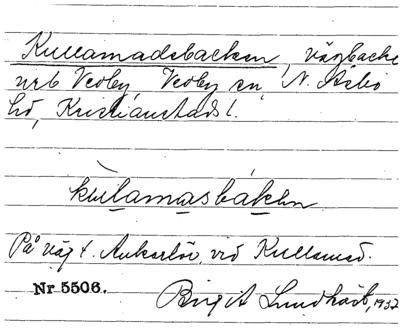 Kullamadsbacken, vägbacke
Vedby, Vedby sn, N. Åsbo
hd, Kristianstads l.
kùlamasbákən
På väg t. Ankarlöv, vid Kullamad.
Nr 5506.
Birgit Lundkvist, 1932